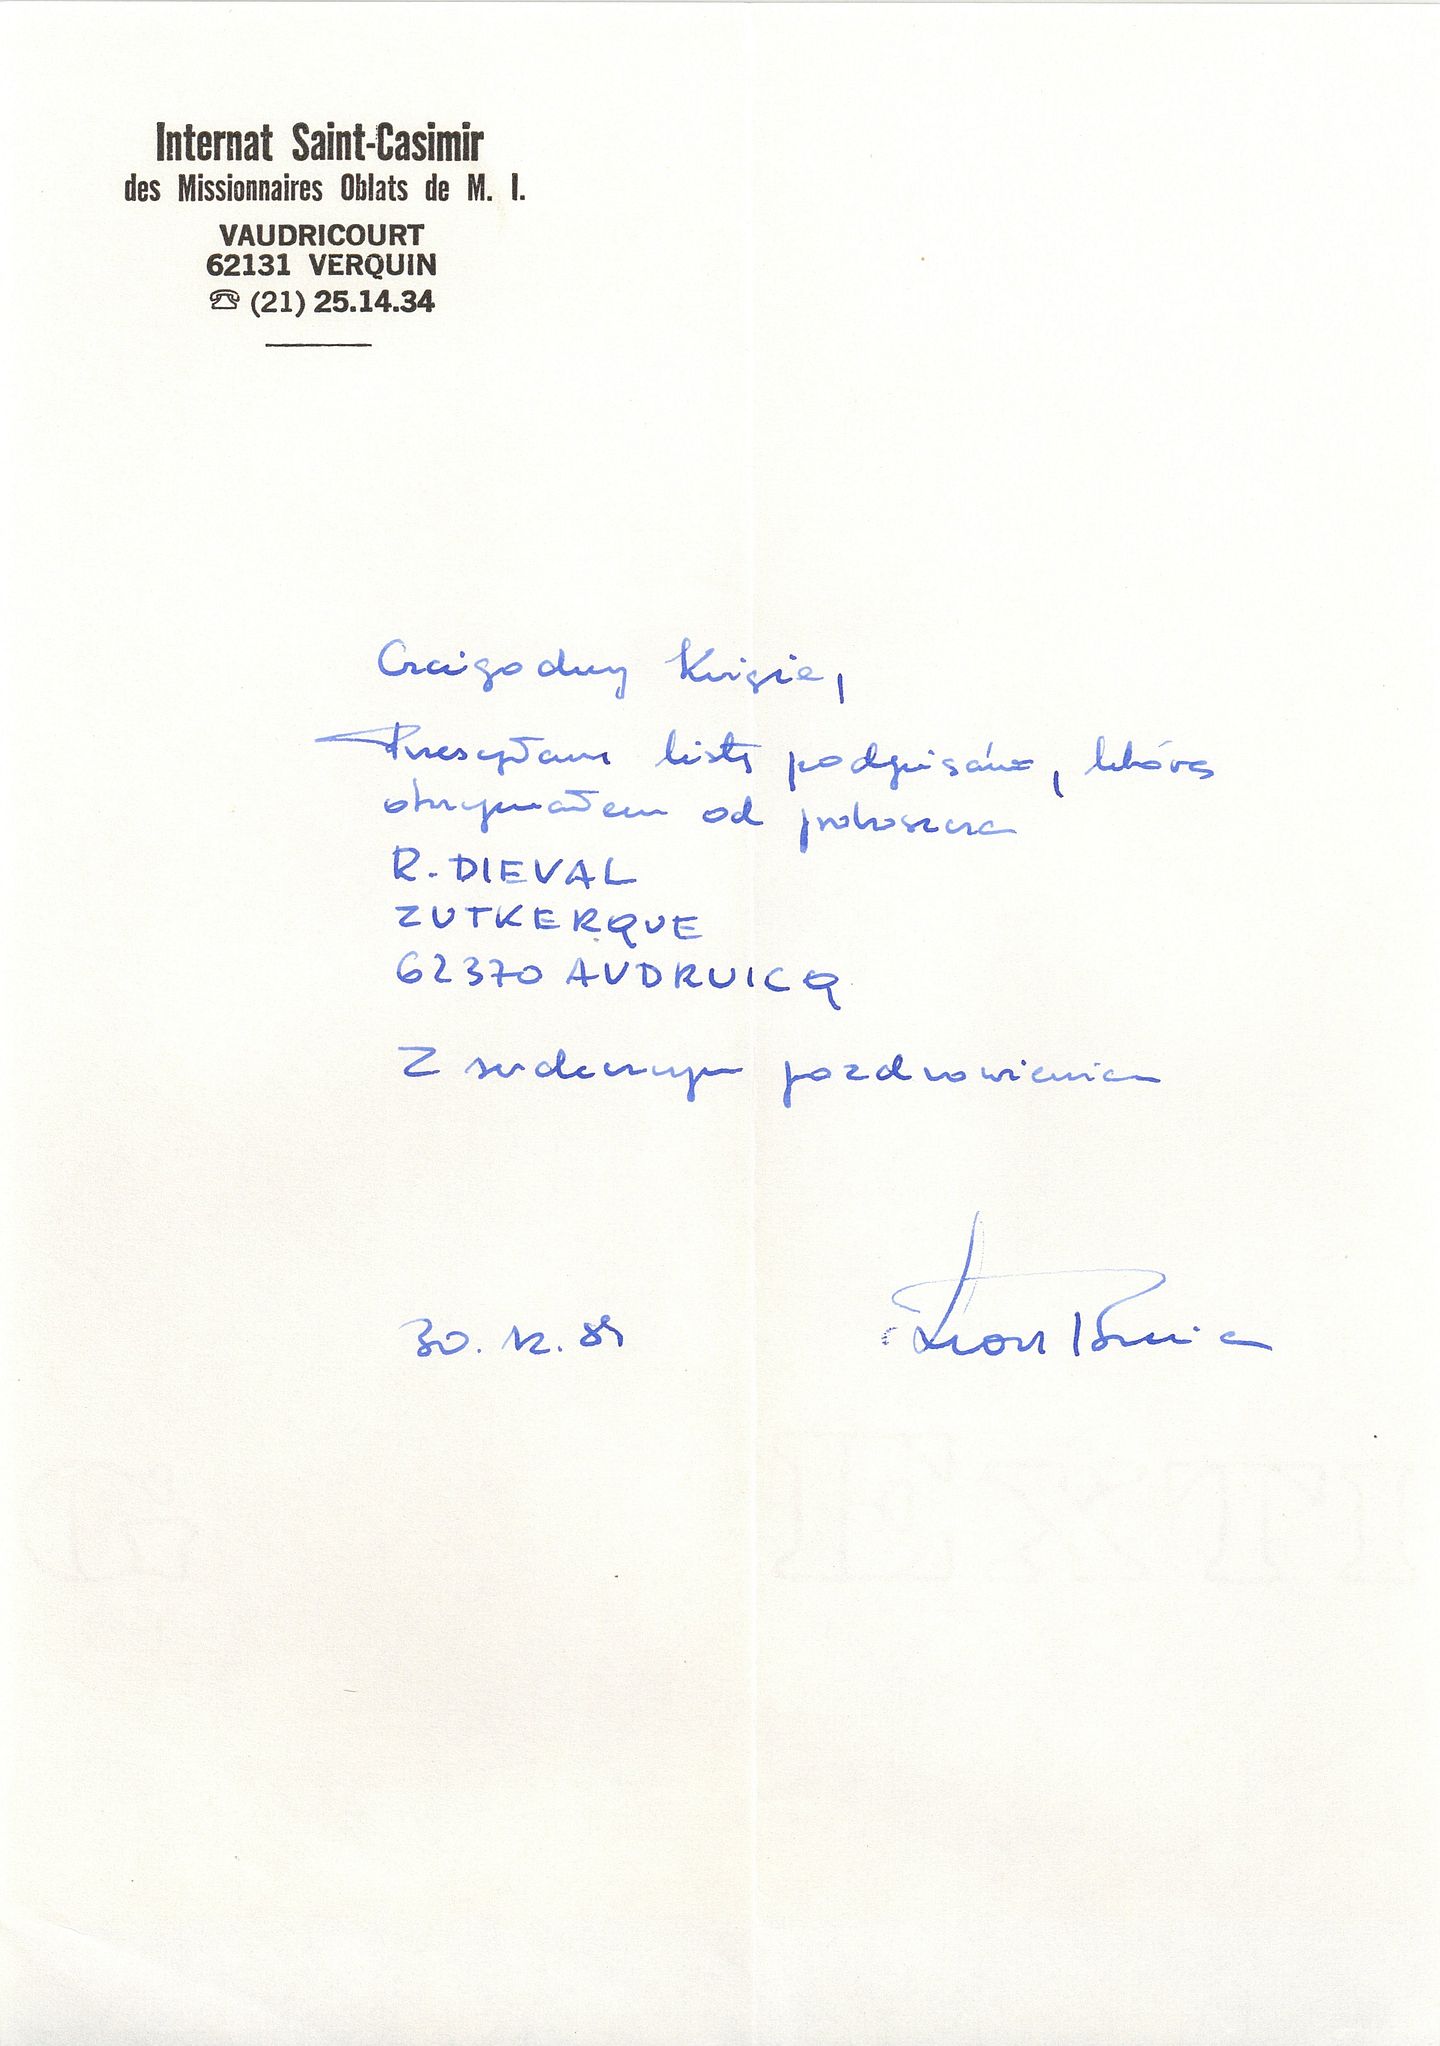 Internat Saint-Casimir
des Missionnaires Oblats de M. I.
VAUDRICOURT
62131 VERQUIN
☎ (21) 25.14.34
Czcigodny Księże,
Przesyłam listę podpisów, którą
otrzymałem od proboszcza
R. DIEVAL
ZUTKERQUE
62370 AUDRUICQ
Z serdecznym pozdrowieniem
30. 12. 89
Leon